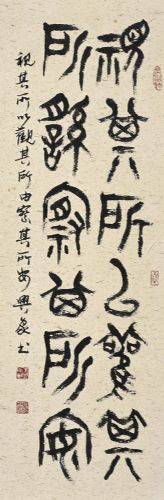 視其所以觀其
所由察其所安
視其所以觀其所由察其所安 興象书